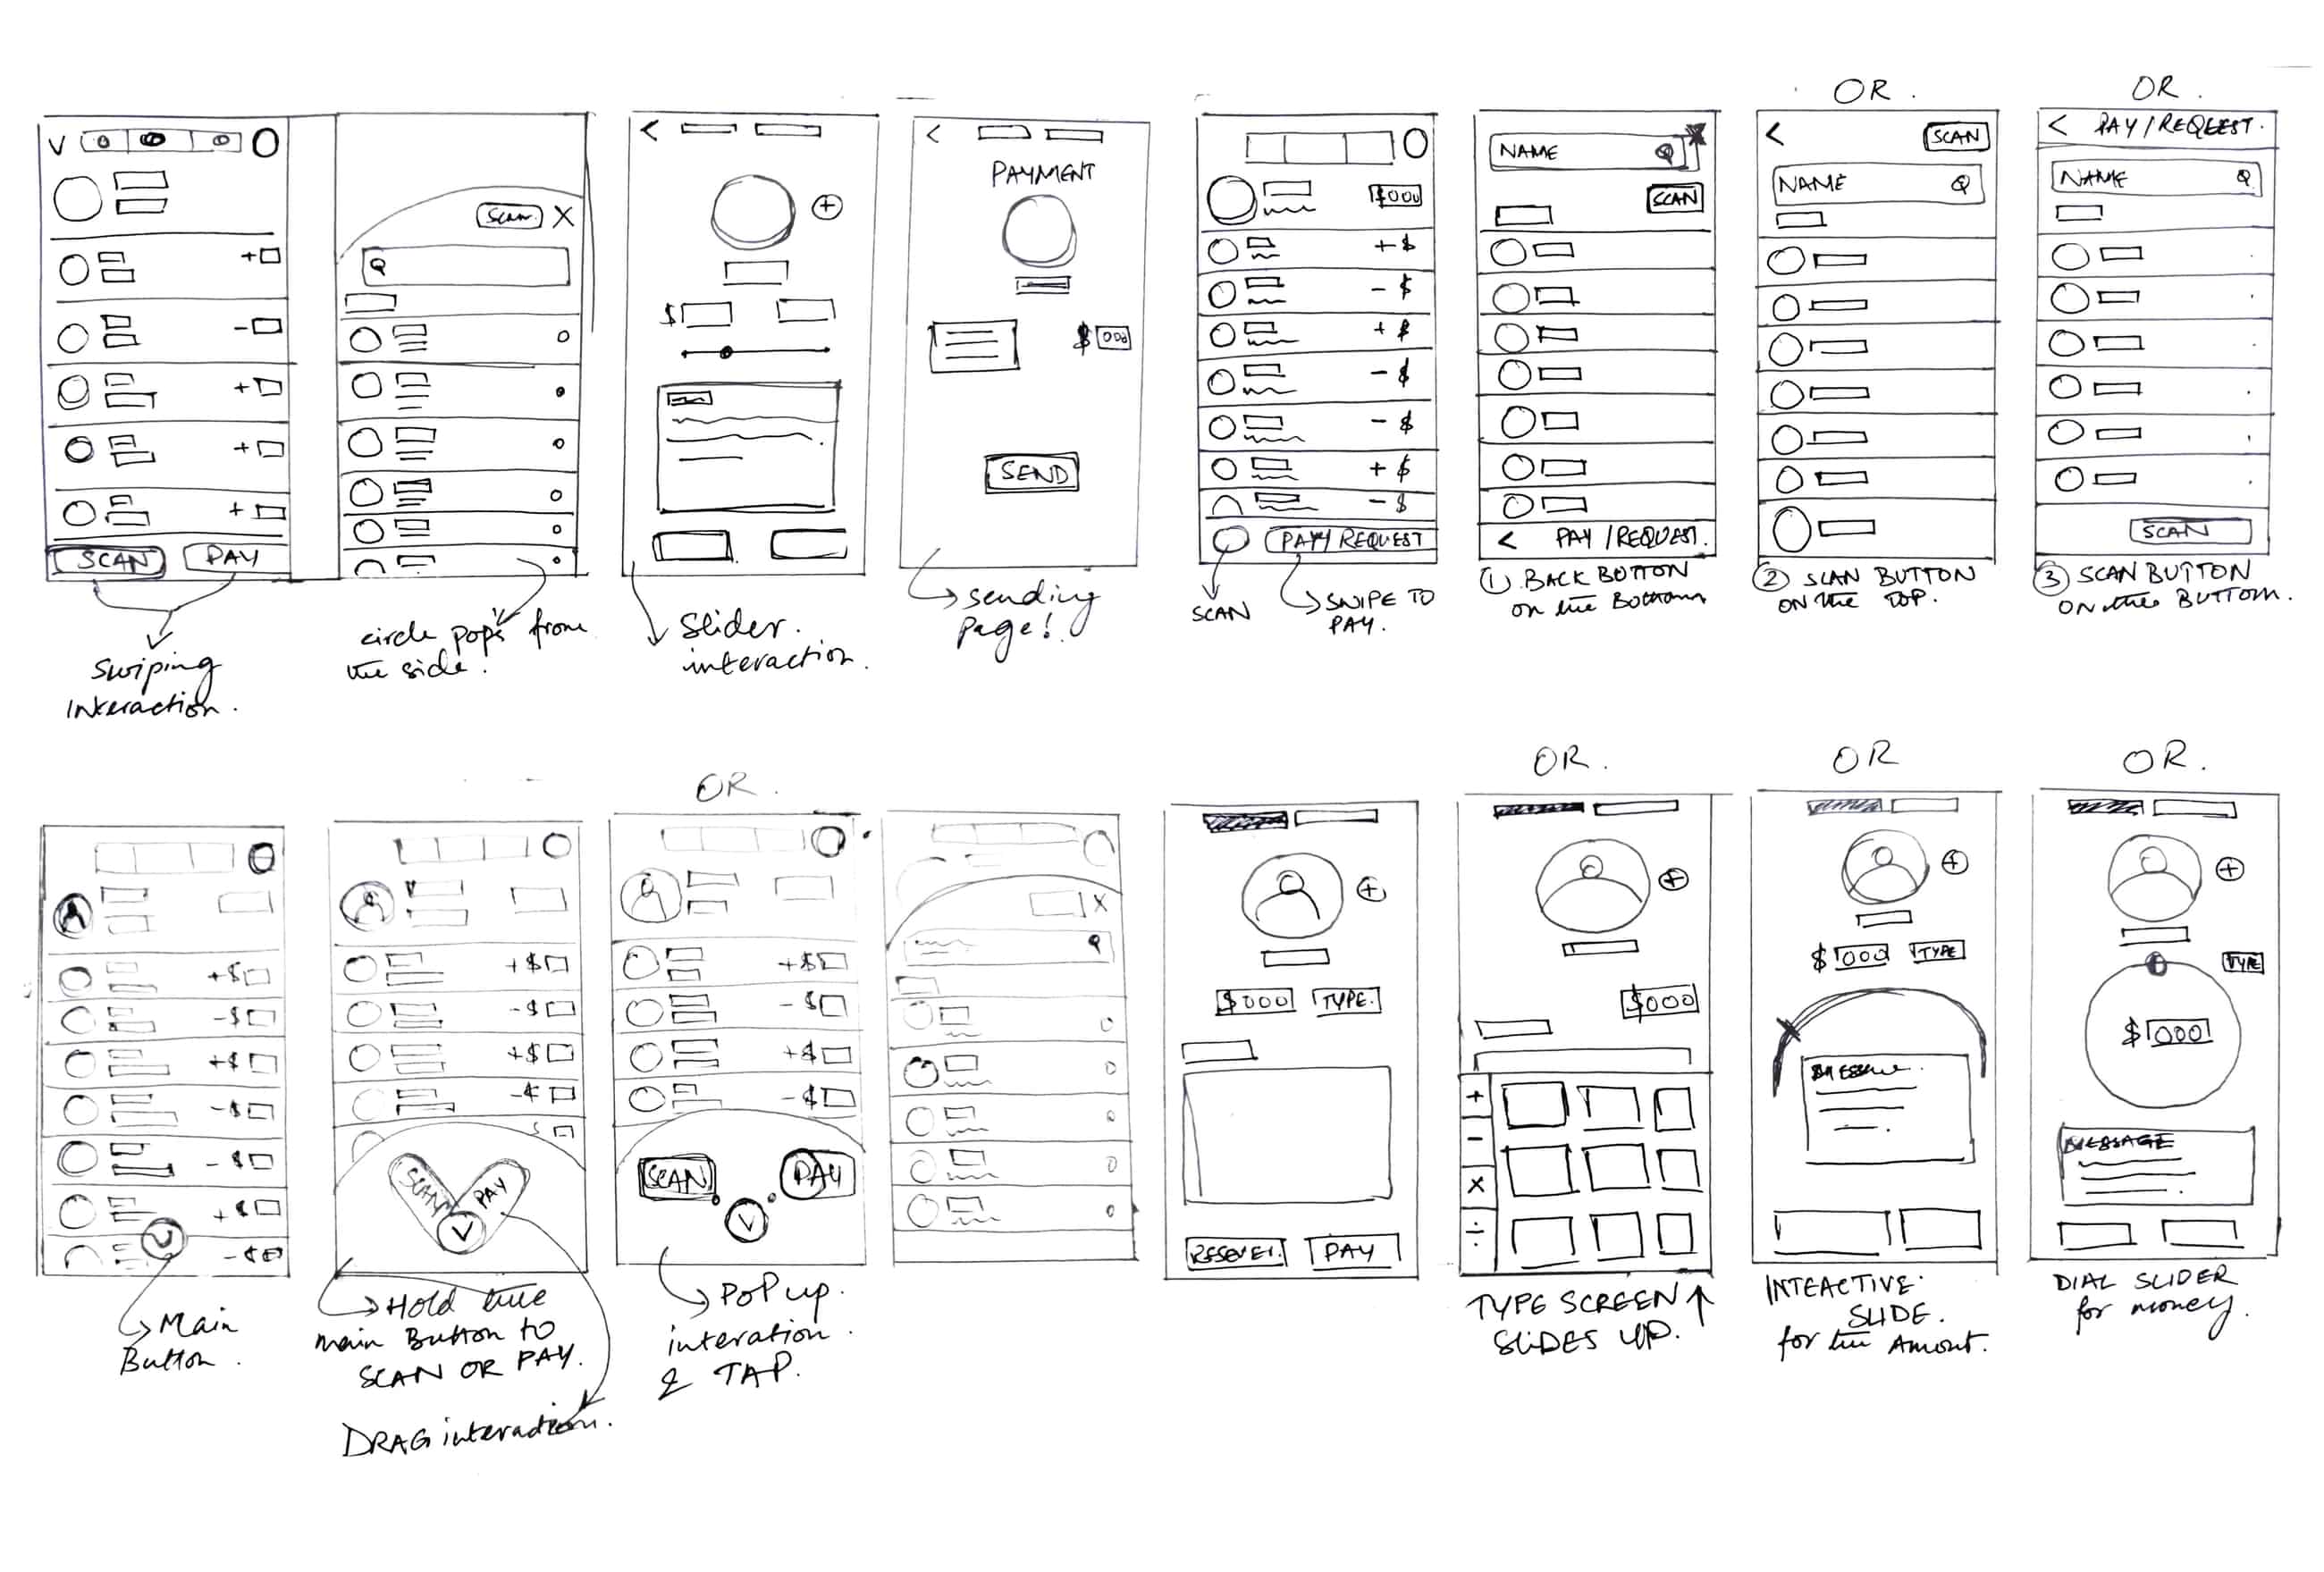 OR.
OR.
V
Scan
X
Q
+
-
+
+
+
SCAN
PAY
Swiping
Interaction.
circle pops from
the side.
<
+
$
Slider.
interaction.
<
PAYMENT
$ 000
SEND
Sending
Page!
$000
+ $
- $
+ $
- $
- $
+ $
- $
PAY/REQUEST
SCAN
SWIPE TO
PAY.
NAME
SCAN
< PAY / REQUEST.
① BACK BUTTON
on the Bottom
<
SCAN
NAME
② SCAN BUTTON
ON the TOP.
< PAY / REQEEST.
NAME
SCAN
③ SCAN BUTTON
ON the BUTTOM.
OR.
OR.
OR
OR.
+$
-$
+$
-$
-$
+$
-$
V
Main
Button.
+$
-$
+$
-$
SCAN
PAY
V
Hold the
main Button to
SCAN OR PAY.
DRAG interaction.
+$
-$
+$
-$
SCAN
PAY
V
POP up.
interation
& TAP.
X
+
$000
TYPE.
PAY
+
$000
+
-
X
÷
TYPE SCREEN ↑
SLIDES UP.
+
$ 000
TYPE
INTEACTIVE
SLIDE.
for the Amount.
+
TYPE
$ 000
MESSAGE
DIAL SLIDER
for money.